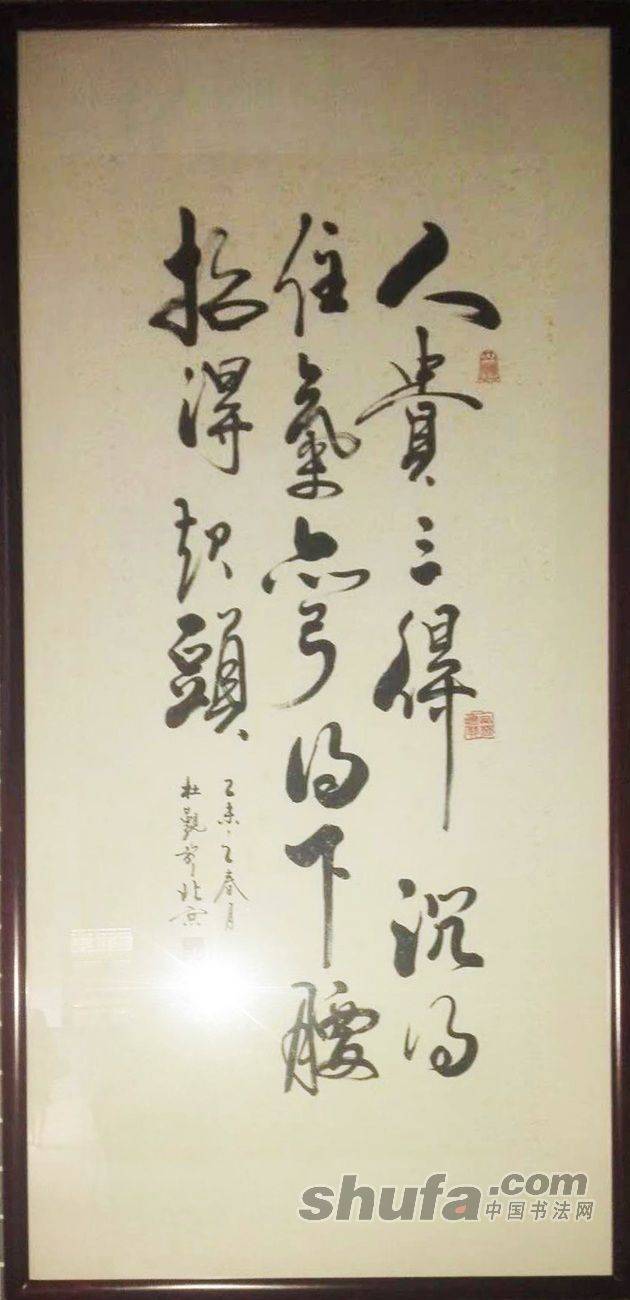 人貴三得沉得
住氣弯得下腰
抬得起頭
乙未之春月
杜於北京
shufa.com
中国书法网